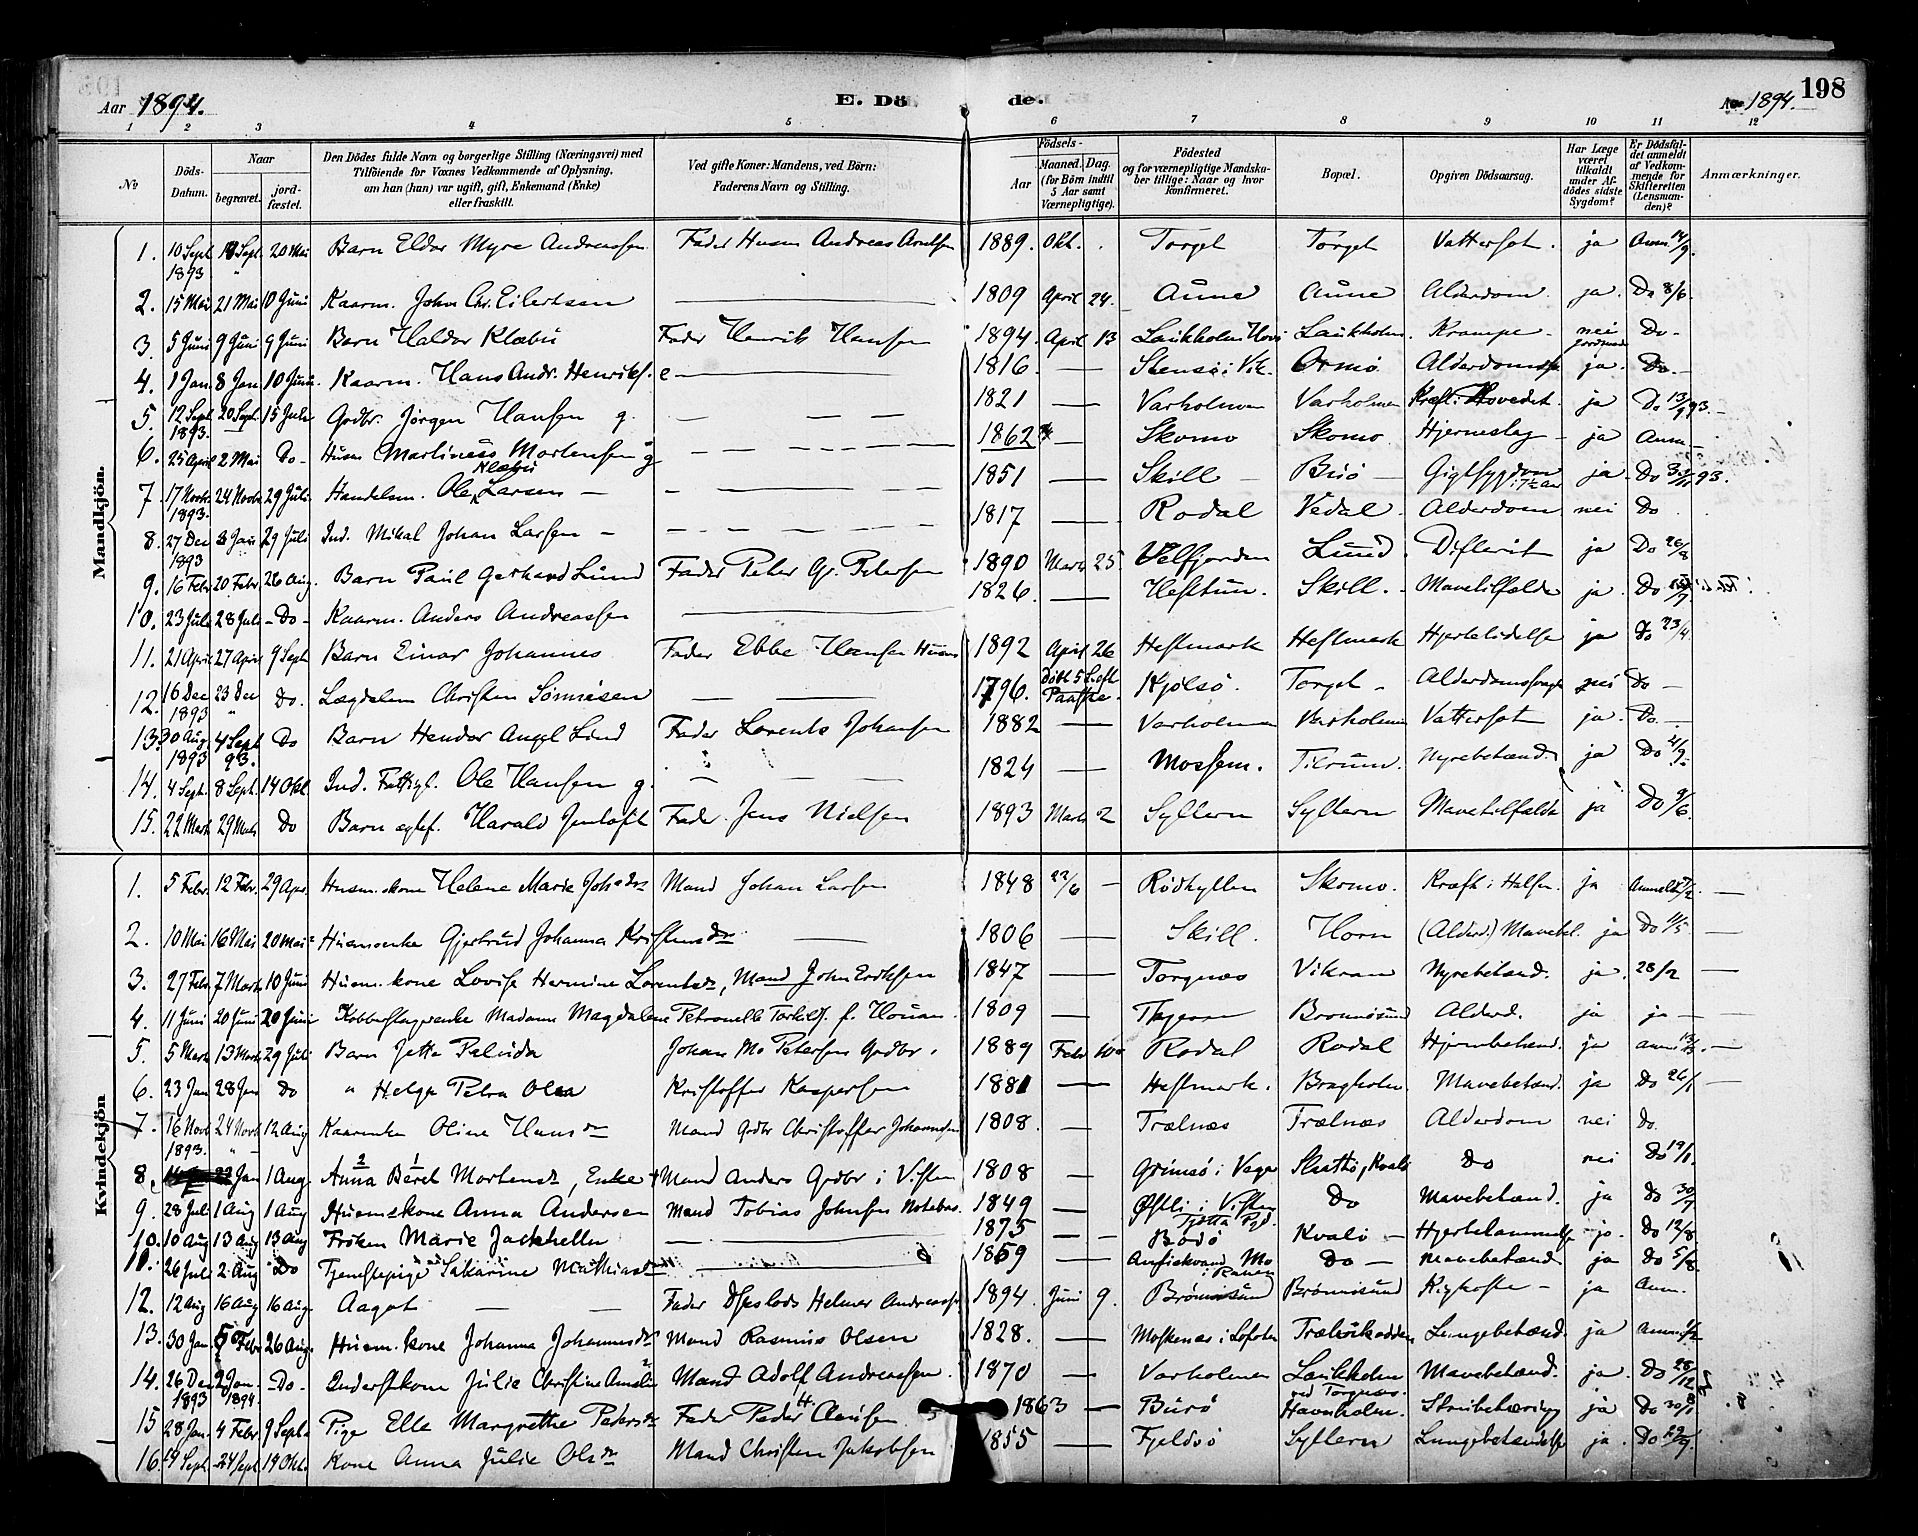 198
Aar 1894.
E. Döde.
Aar 1894.
1 2 3 4 5 6 7 8 9 10 11 12
No
Döds-Datum.
Naar
begravet.
jord-fæstet.
Den Dödes fulde Navn og borgerlige Stilling (Næringsvei) med
Tilföiende for Voxnes Vedkommende af Oplysning,
om han (hun) var ugift, gift, Enkemand (Enke)
eller fraskilt.
Ved gifte Koner: Mandens, ved Börn:
Faderens Navn og Stilling.
Födsels-
Aar
Maaned. Dag.
(for Börn indtil 5 Aar samt Værnepligtige).
Födested
og for værnepligtige Mandskaber tillige: Naar og hvor konfirmeret.
Bopæl.
Opgiven Dödsaarsag.
Har Læge været tilkaldt under Afdödes sidste Sygdom?
Er Dödsfaldet anmeldt af Vedkommende for Skifteretten (Lensmanden)?
Anmærkninger.
Mandkjön.
1. 10 Sept 1893 Sept. 20 Mai Barn Eldor Myre Andreassen Fader Husm Andreas Arntsen 1889. Okt. Torget Torget Vattersot. ja Anm. 14/9.
2. 15 Mai 21 Mai 10 Juni Kaarm. Johan Chr. Eilertsen — 1809 April 24. Aune Aune Alderdom. ja. Do 8/6.
3. 5 Juni 9 Juni 9 Juni Barn Haldor Klæbu Fader Henrik Hansen 1894 April 13 Laukholm Laukholm. Krampe nei Do.
4. 1 Jan 8 Jan 10 Juni. Kaarm. Hans Andr. Henriks. e — 1816. — Stensö i Vik. Ormö Alderdoms ja. Do.
5. 12 Sept 1893. 20 Sept. 15 Juli Grdbr. Jörgen Hansen g. — 1821 — Varholmen Varholmen Kræft i Hovedet. ja Do 13/9 93.
6. 25 April 2 Mai Do Husm Martinus Mortensen g — 1862 — Skomo Skomo. Hjerneslag ja Anm
7 17 Novbr 1893. 24 Novbr 29 Juli Handelsm. Ole Klæbu Larsen — 1851 — Skill Buö Gigtsygdom ja. Do 93.
8. 27 Dec 1893 8 Jan 29 Juli Ind. Mikal Johan Larsen — 1817 — Rodal Vedal. Alderdom nei Do
9. 16 Febr 20 Febr. 26 Aug. Barn Paul Gerhard Lund Fader Peter Gr. Petersen 1890 Marts 25. Velfjorden Lund. Difterit ja Do 26/8
10. 23 Juli 28 Juli Do Kaarm. Anders Andreassen — 1826. — Heftun. Skill. Mavetilfælde ja. Do
11. 21 April 27 April 9 Sept Barn Einar Johannes Fader Ebbe Hansen Husm 1892 April 26 Heftmark Heftmark Hjertelidelse ja Do 23/4
12. 16 Dec 1893 23 Dec Do. Lægdslem Christen Sönnesen — 1796. döbt 5 S. eft. Paaske. Kjölsö. Torget Alderdomssvagh nei Do
13. 30 Aug 1893 4 Sept 93. Do Barn Hendor Angel Lind Fader Lorents Johansen 1882 — Varholmen Varholmen Vattersot ja. Do
14. 4 Sept. 8 Sept. 14 Okt Ind. Fattigl. Ole Hansen g. — 1824 — Mossem. Tilrum. Nyrebetænd. ja Do 21/9.
15. 22 Marts 29 Marts Do Barn egtef. Harald Jentoft Fader Jens Nielsen 1893 Marts 2 Syltern Syltern Mavetilfælde ja Do 9/6.
Kvindekjön
1. 5 Febr. 12 Febr. 29 Apr. Husm. kone Helene Marie Johsdr Mand Johan Larsen 1848 22/6 — Rödhyllen Skomo. Kræft i Halsen. ja Anmeldt
2. 10 Mai 16 Mai 20 Mai Husmenke Gjertrud Johanna Kristensdr — 1806 — Skill. Horn (Alderd.) Mavekl. ja Do 11/5
3. 27 Febr 7 Marts 10 Juni Husm. kone Lovise Hermine Lorentsdr, Mand John Eriksen 1847 — Torgnæs Vikran Nyrebetænd. ja. 28/2
4. 11 Juni 20 Juni 20 Juni Kobberslagerenke Madame Magdalene Petronelle Torkels. f. 1809 — Brönnösund Alderd. ja ja
5. 5 Marts 13 Marts 29 Juli Barn Jetta Palida Johan Mo Petersen Grdbr. 1889 Febr 10 Rodal Rodal Hjernebetænd. ja anm. 13/3.
6. 23 Jan 28 Jan Do " Helga Petra Olea Kristoffer Kaspersen 1881 — Heftmark. Bragholm. Mavebetænd. ja Do 26/1
7. 16 Novbr 1893. 24 Novbr 12 Aug Kaarenke Oline Hansdr Mand Grdbr Christoffer Johannesen 1808. — Trælnæs Trælnæs Alderdom nei Do.
8. Jan 1 Aug. Anna Beret Mortensdr, Enke Mand Anders Grdbr i Visten 1808 — Grimsö i Vega Slattö, Kvalö Do nei Do 19/1.
9. 28 Juli 1 Aug 1 Aug Husmskone Anna Andersen Mand Tobias Johnsen 1849 — i Visten Tjötta Pgd. Do Mavebetænd. ja Do 30/7
10. 10 Aug 13 Aug 13 Aug Fröken Marie Jackhelln — 1875 — Bodö Kvalö Hjertelammelse ja. Do 12/8
26 Juli 2 Aug Do Tjenestepige Sakarine Mathiasdr — 1859 Mo i Ranen Do Mavebetænd ja Do 5/8.
12. 12 Aug 16 Aug 16 Aug. Aagot — Fader Helmer Andreassen 1894. Juni 9. Brönösund Brönnösund Kighoste ja Anm.
13. 30 Jan. 5 Febr 26 Aug. Husm. kone Johanna Johannesdr Mand Rasmus Olsen 1828. — Moskenæs i Lofoten Trælvikodden Lungebetænd. ja anm 1/2
14. 26 Dec 1893 2 Jan. 1894. Do Inderstkone Julie Christine Mand Adolf Andreassen. 1870 — Varholmen Laukholm ved Torgnæs. Mavebetænd. ja. Do 28/12
15 28 Jan. 4 Febr 9 Sept. Pige Elle Margrethe Pedersdr Fader Peder H Clausen 1863 — Burö Havnholm. ja Do 30/1
16. 19 Sept. 24 Sept 14 Okt. Kone Anna Julie Olsdr Mand Christen Jakobsen 1855 — Fjeldvö Syltern Lungebetændelse ja. Do 29/9.